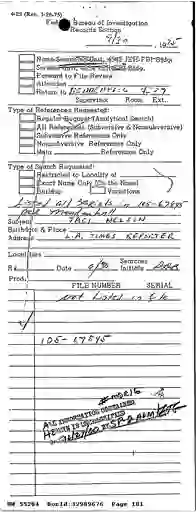 4-22 (Rev. 1-26-75)
Federal Bureau of Investigation
Records Section
, 19
Name Searching Unit,
Service Unit,
Forward to File Review
Attention
Return to
Supervisor Room Ext.
Type of References Requested:
Regular Request (Analytical Search)
All References (Subversive & Nonsubversive)
Subversive References Only
Nonsubversive References Only
Main References Only
Type of Search Requested:
Restricted to Locality of
Exact Name Only (On the Nose)
Buildup Variations
Listed all serials in 105-67845
per
Subject JACI NELSON
Birthdate & Place
Address L.A. TIMES REPORTER
Localities
R# Date Searcher Initials
Prod.
FILE NUMBER SERIAL
Not listed in file
105-67845
ALL INFORMATION CONTAINED
HEREIN IS UNCLASSIFIED
NW 55264 DocId:32989676 Page 181